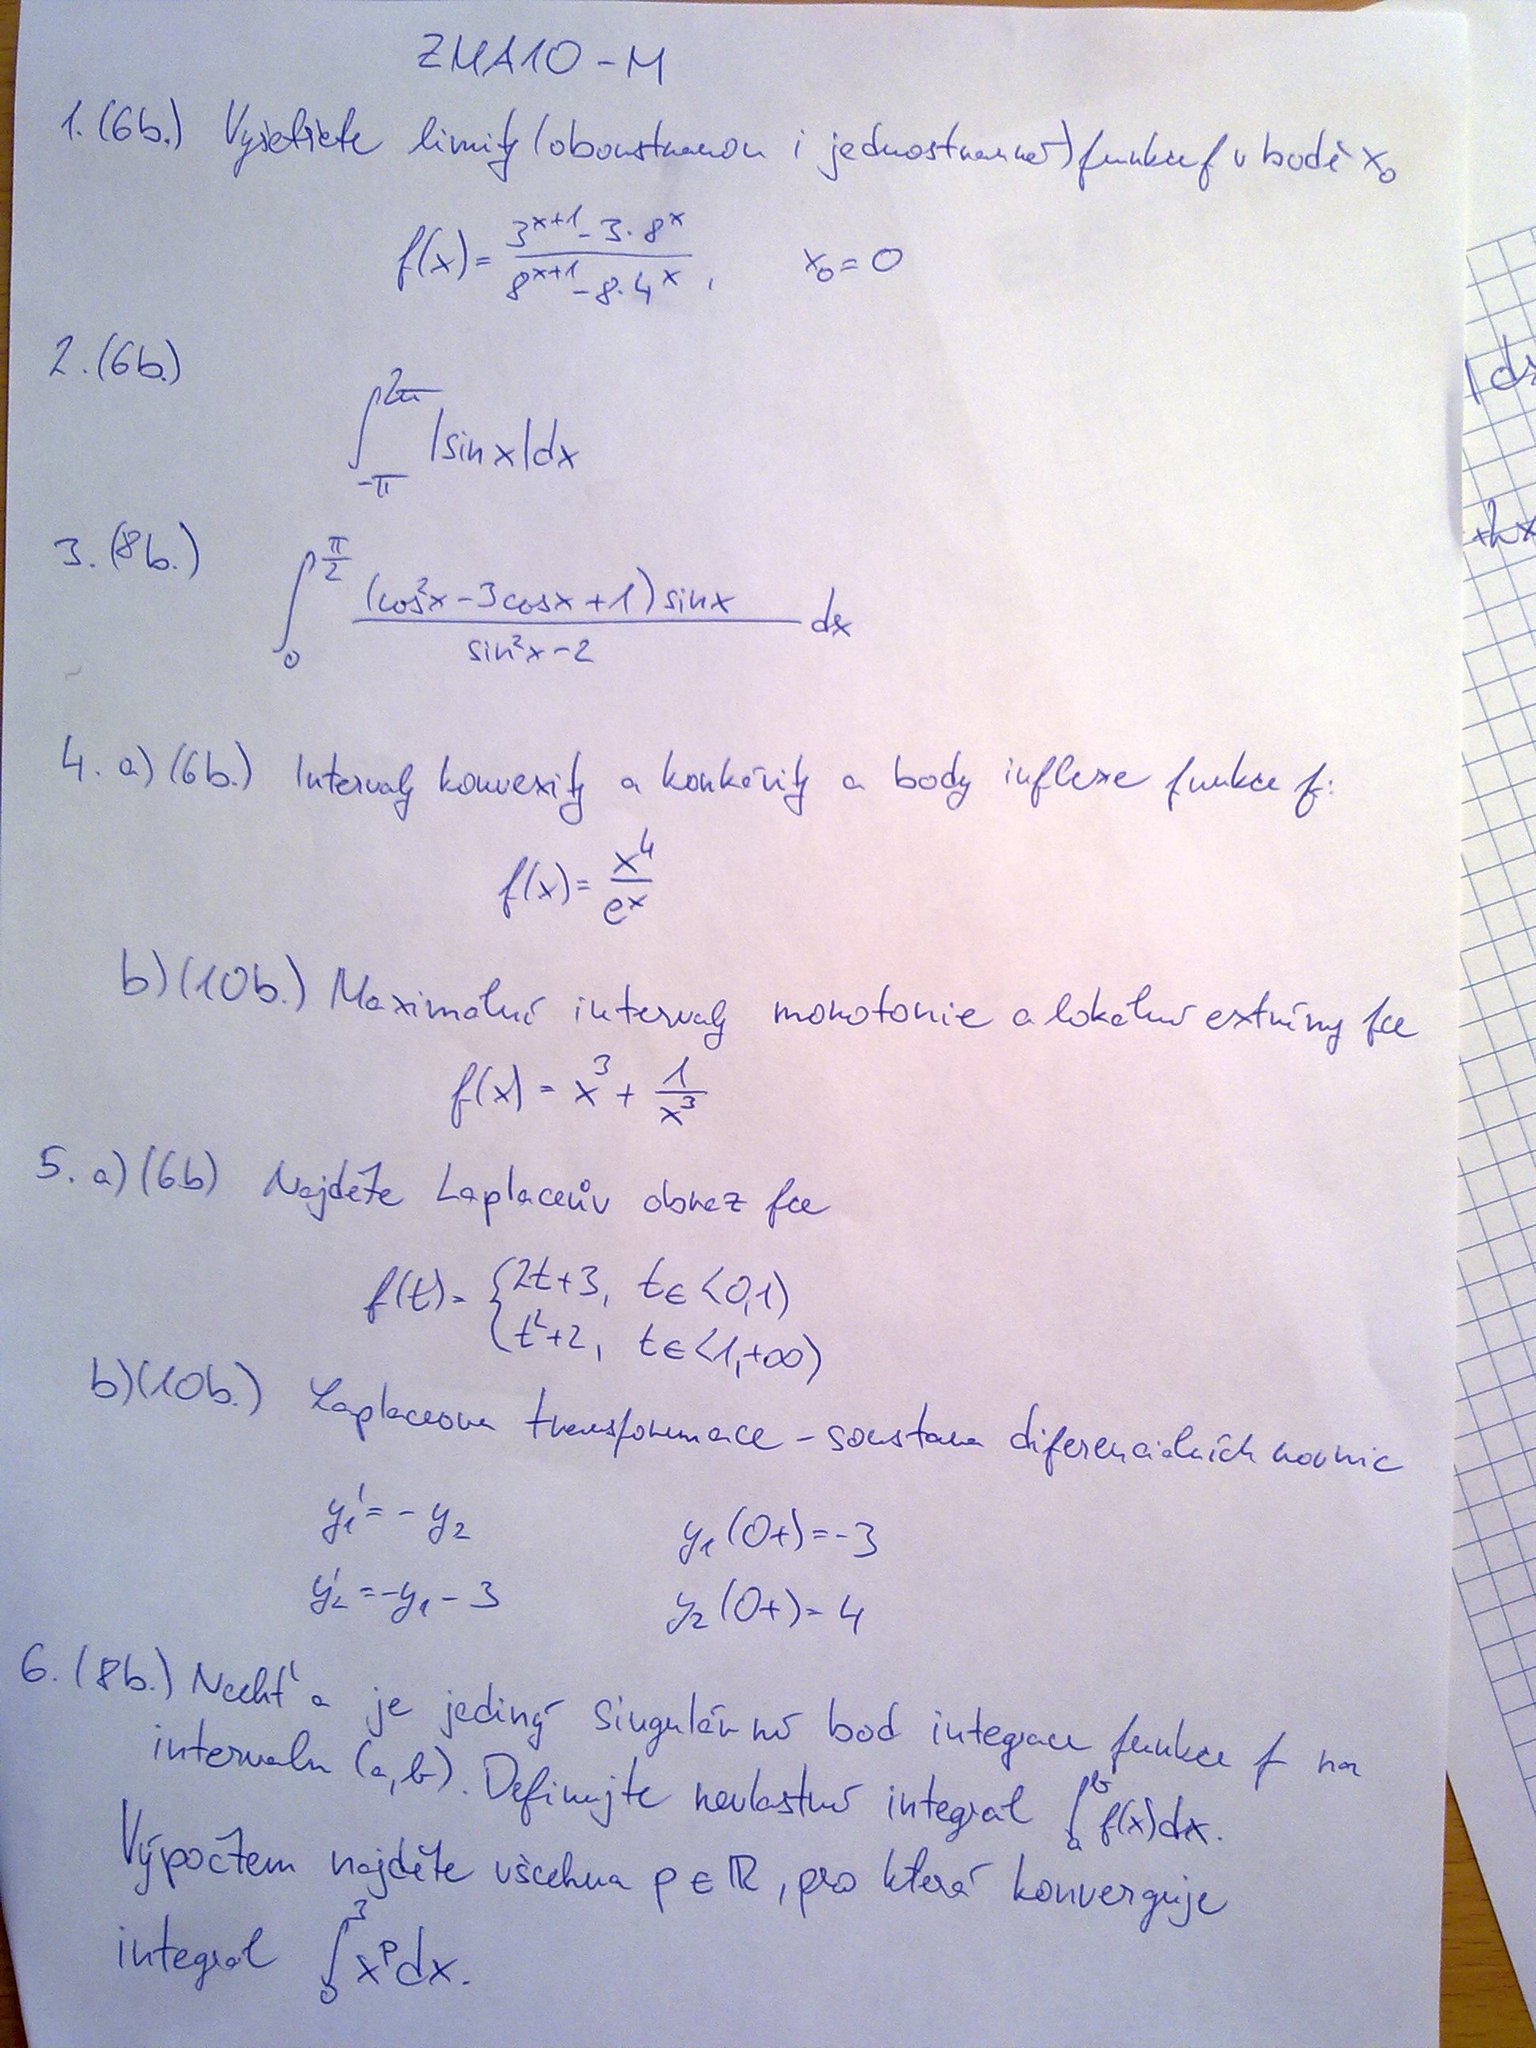 ZMA10 - M
1. (6b.) Vyšetřete limity (oboustrannou i jednostranné) funkce f v bodě x₀
f(x) = (3^(x+1) - 3·8^x)/(8^(x+1) - 8·4^x), x₀ = 0
2. (6b.)
∫_{-π}^{2π} |sin x| dx
3. (8b.) ∫_0^{π/2} ((cos²x - 3cosx + 1) sinx)/(sin²x - 2) dx
4. a) (6b.) Intervaly konvexity a konkávity a body inflexe funkce f:
f(x) = x⁴/e^x
b) (10b.) Maximální intervaly monotonie a lokální extrémy fce
f(x) = x³ + 1/x³
5. a) (6b) Najděte Laplaceův obraz fce
f(t) = { 2t+3, t ∈ <0,1)
t²+2, t ∈ <1,+∞)
b) (10b.) Laplaceova transformace - soustava diferenciálních rovnic
y₁' = - y₂ y₁(0+) = -3
y₂' = -y₁ - 3 y₂(0+) = 4
6. (8b.) Nechť a je jediný singulární bod integrace funkce f na
intervalu (a, b). Definujte nevlastní integrál ∫_a^b f(x)dx.
Výpočtem najděte všechna p ∈ ℝ, pro která konverguje
integrál ∫_0^3 x^p dx.
dx